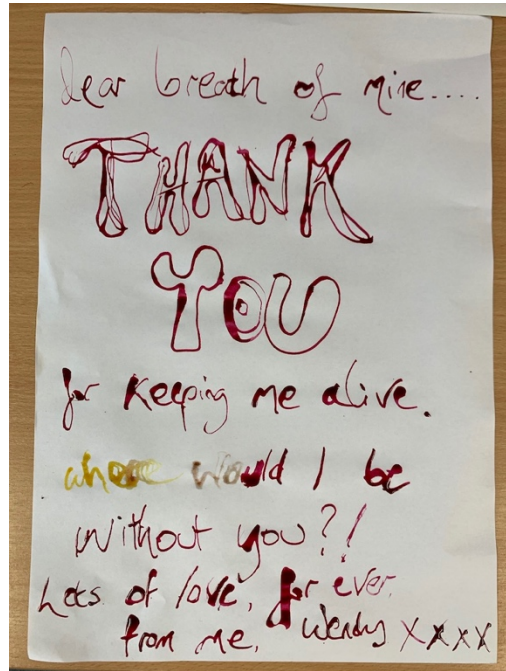 Dear breath of mine....
THANK
YOU
for keeping me alive.
where would I be
without you?!
Lots of love, for ever,
from me, Wendy xxxx